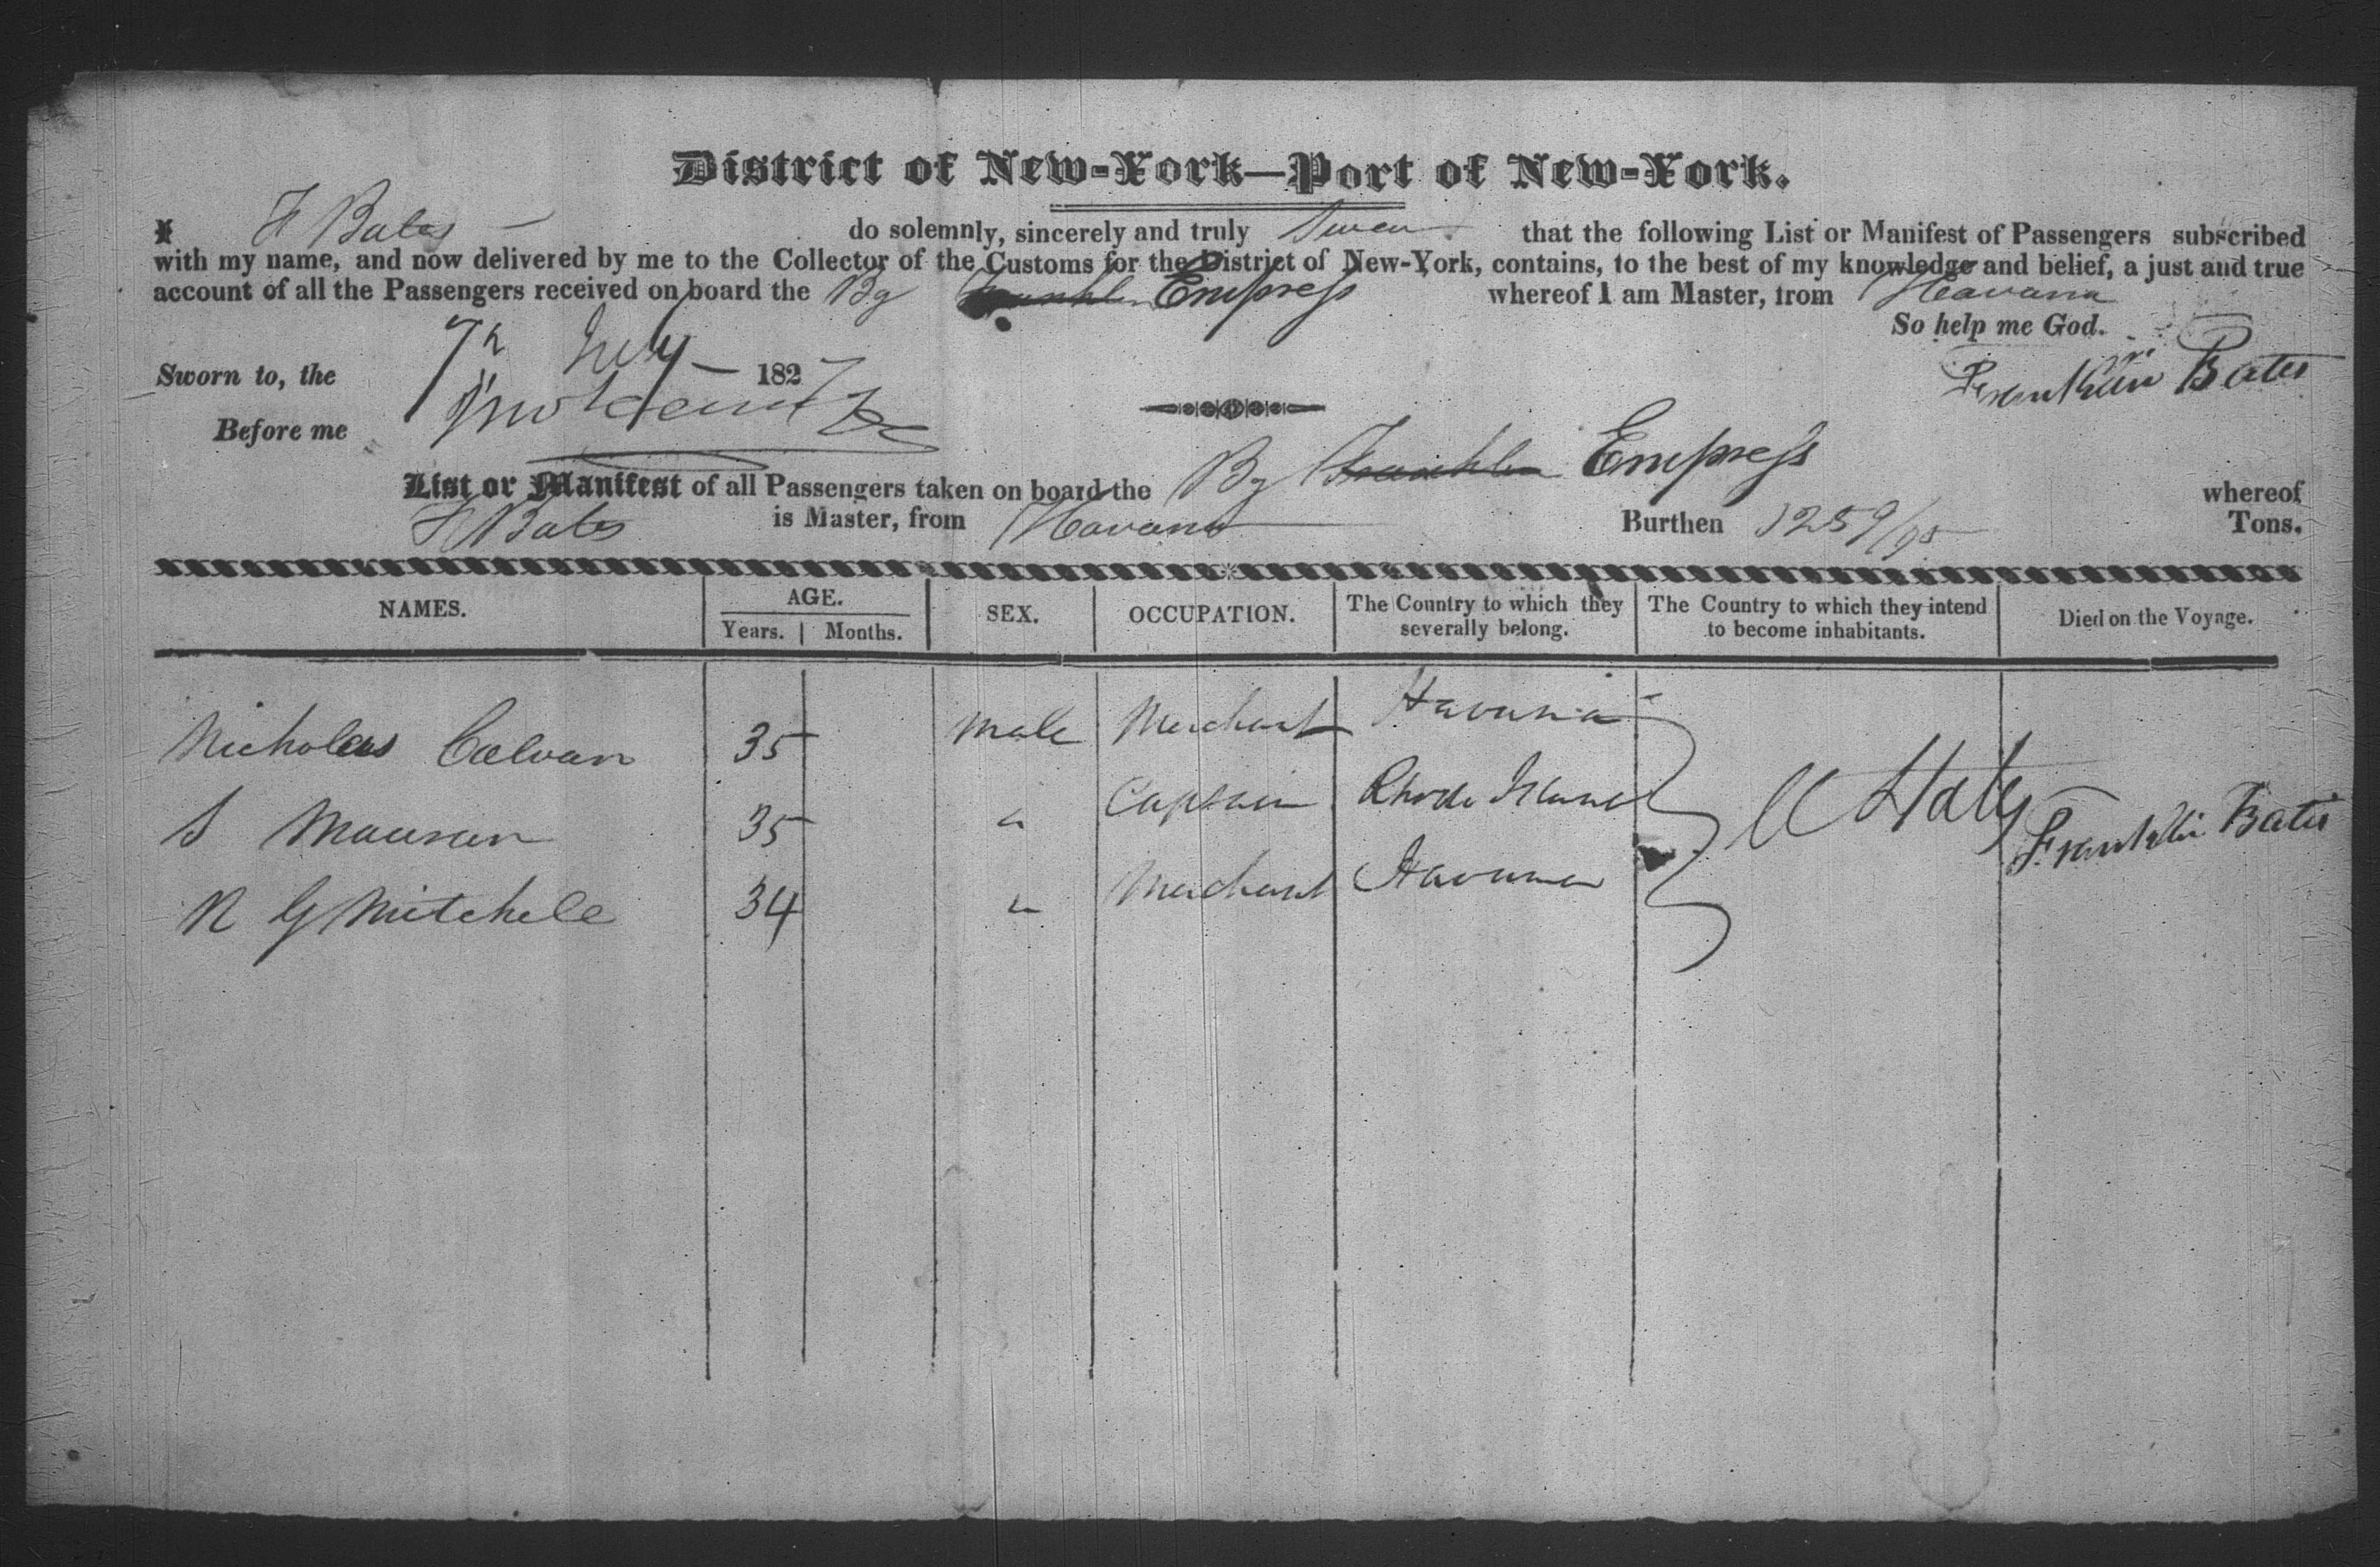 District of New-York—Port of New-York.
I F Bates do solemnly, sincerely and truly Swear that the following List or Manifest of Passengers subscribed
with my name, and now delivered by me to the Collector of the Customs for the District of New-York, contains, to the best of my knowledge and belief, a just and true
account of all the Passengers received on board the Bg Franklin Empress whereof I am Master, from Havana
So help me God.
Sworn to, the 7th July 1827
Franklin Bates
Before me
List or Manifest of all Passengers taken on board the Bg Franklin Empress whereof
F Bates is Master, from Havana Burthen 125 9/95 Tons.
NAMES. AGE. SEX. OCCUPATION. The Country to which they severally belong. The Country to which they intend to become inhabitants. Died on the Voyage.
Years. Months.
Nicholas Calvan 35 male Merchant Havana
S Mauran 35 " Captain Rhode Island U States
Franklin Bates
N G Mitchell 34 " Merchant Havana